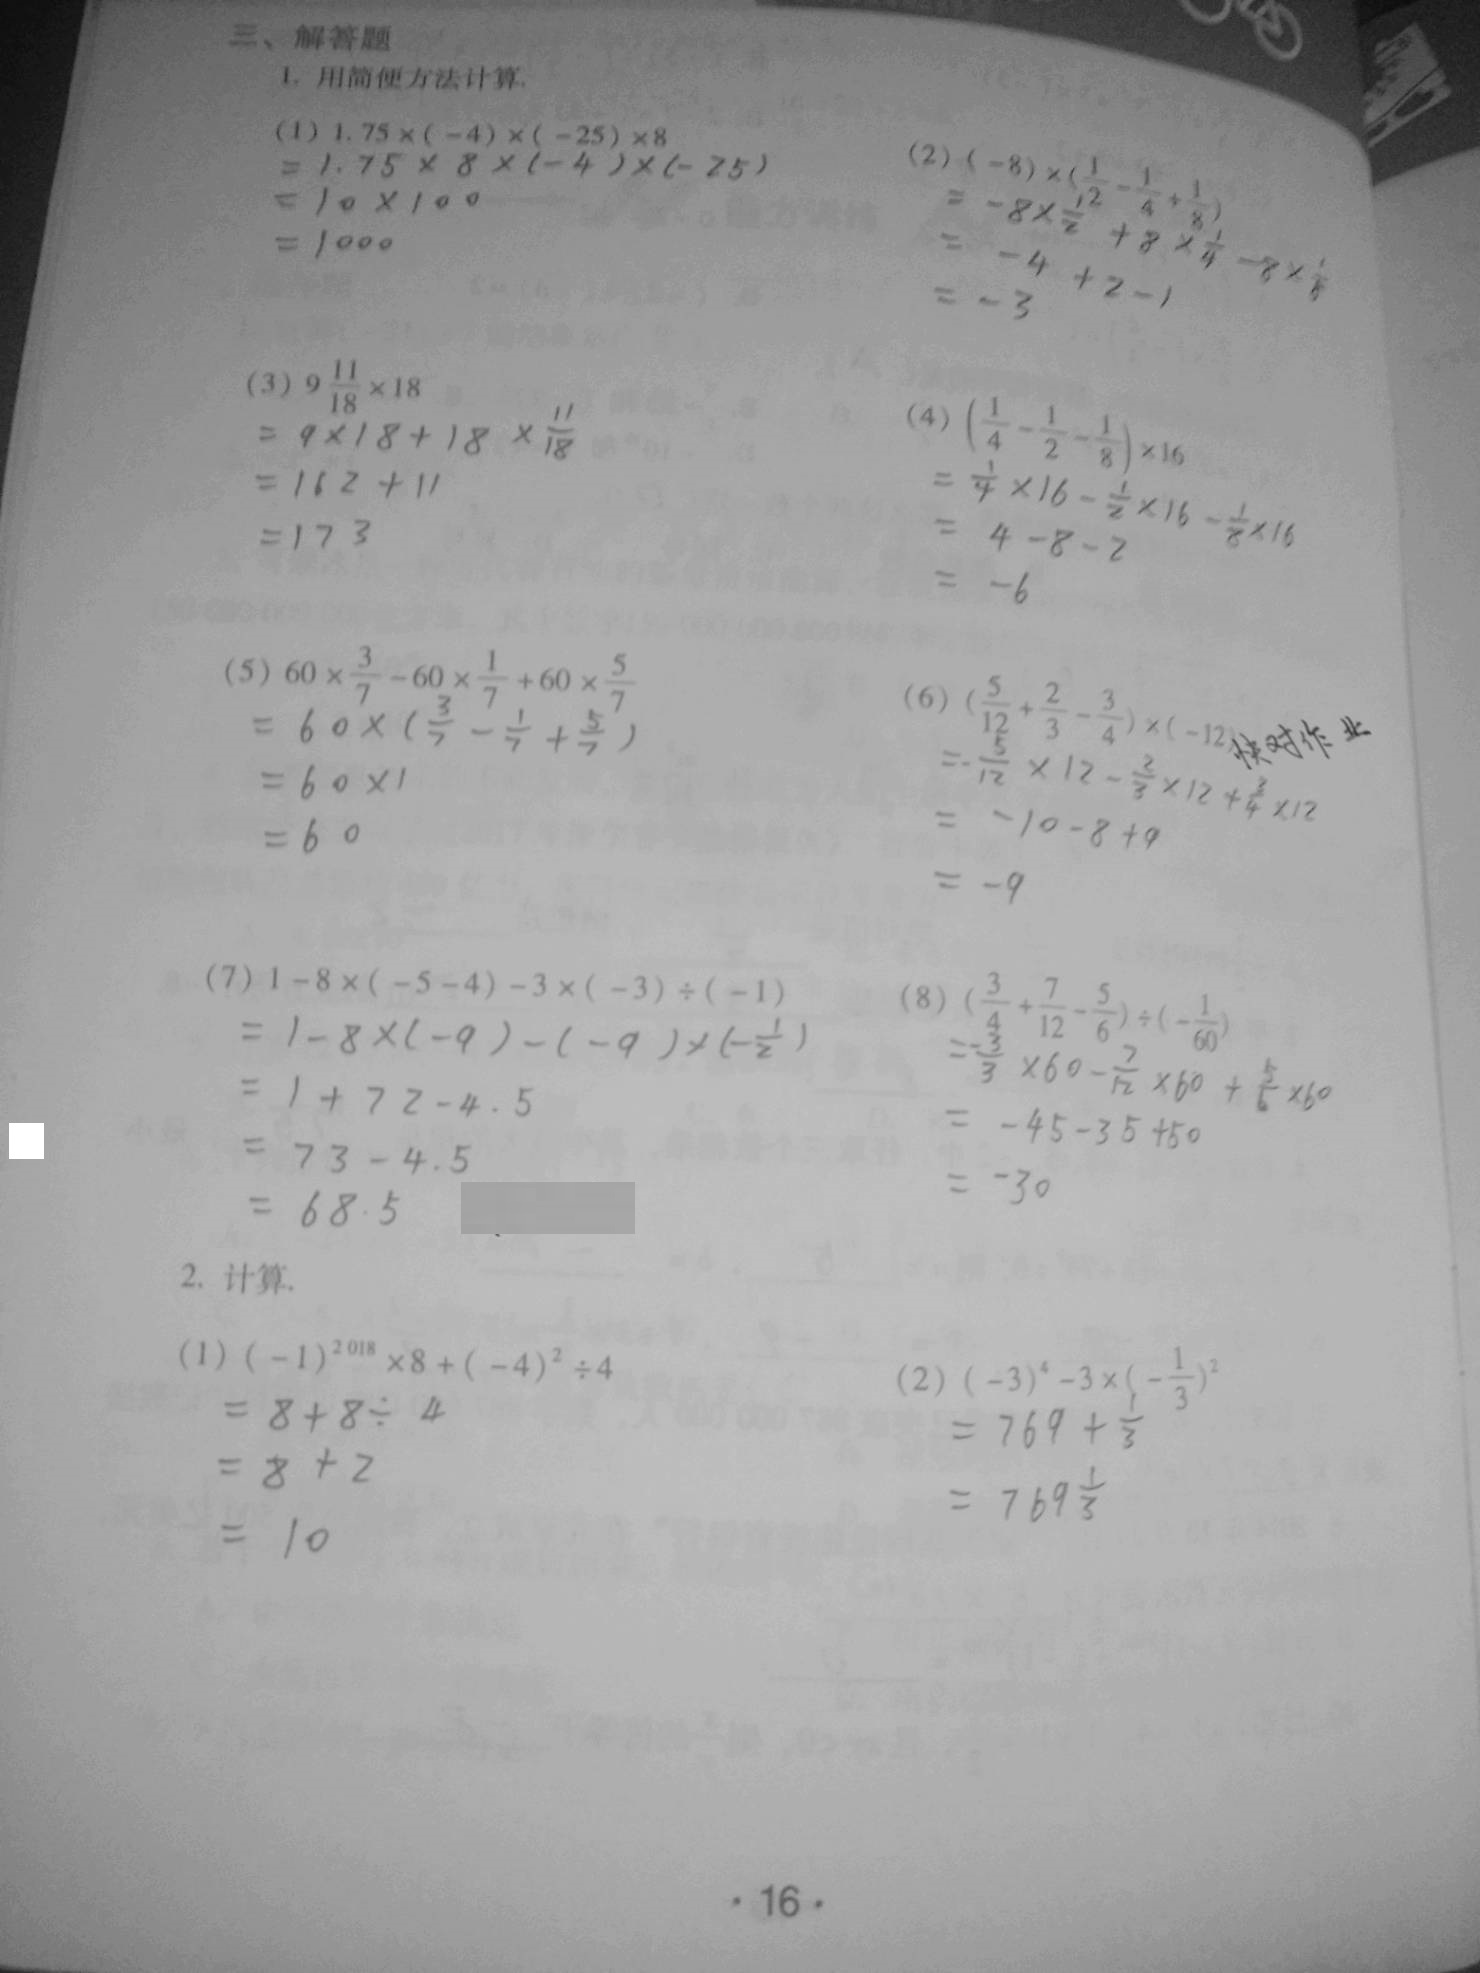 三、解答题
1. 用简便方法计算.
(1) 1.75×(-4)×(-25)×8
=1.75×8×(-4)×(-25)
=10×100
=1000
(2) (-8)×(1/2-1/4+1/8)
=-8×1/2+8×1/4-8×1/8
=-4+2-1
=-3
(3) 9 11/18×18
=9×18+18×11/18
=162+11
=173
(4) (1/4-1/2-1/8)×16
=1/4×16-1/2×16-1/8×16
=4-8-2
=-6
(5) 60×3/7-60×1/7+60×5/7
=60×(3/7-1/7+5/7)
=60×1
=60
(6) (5/12+2/3-3/4)×(-12)
快对作业
=-5/12×12-2/3×12+3/4×12
=-10-8+9
=-9
(7) 1-8×(-5-4)-3×(-3)÷(-1)
=1-8×(-9)-(-9)×(-1/2)
=1+72-4.5
=73-4.5
=68.5
(8) (3/4+7/12-5/6)÷(-1/60)
=-3/3×60-7/12×60+5/6×60
=-45-35+50
=-30
2. 计算.
(1) (-1)²⁰¹⁸×8+(-4)²÷4
=8+8÷4
=8+2
=10
(2) (-3)⁴-3×(-1/3)²
=769+1/3
=769 1/3
·16·